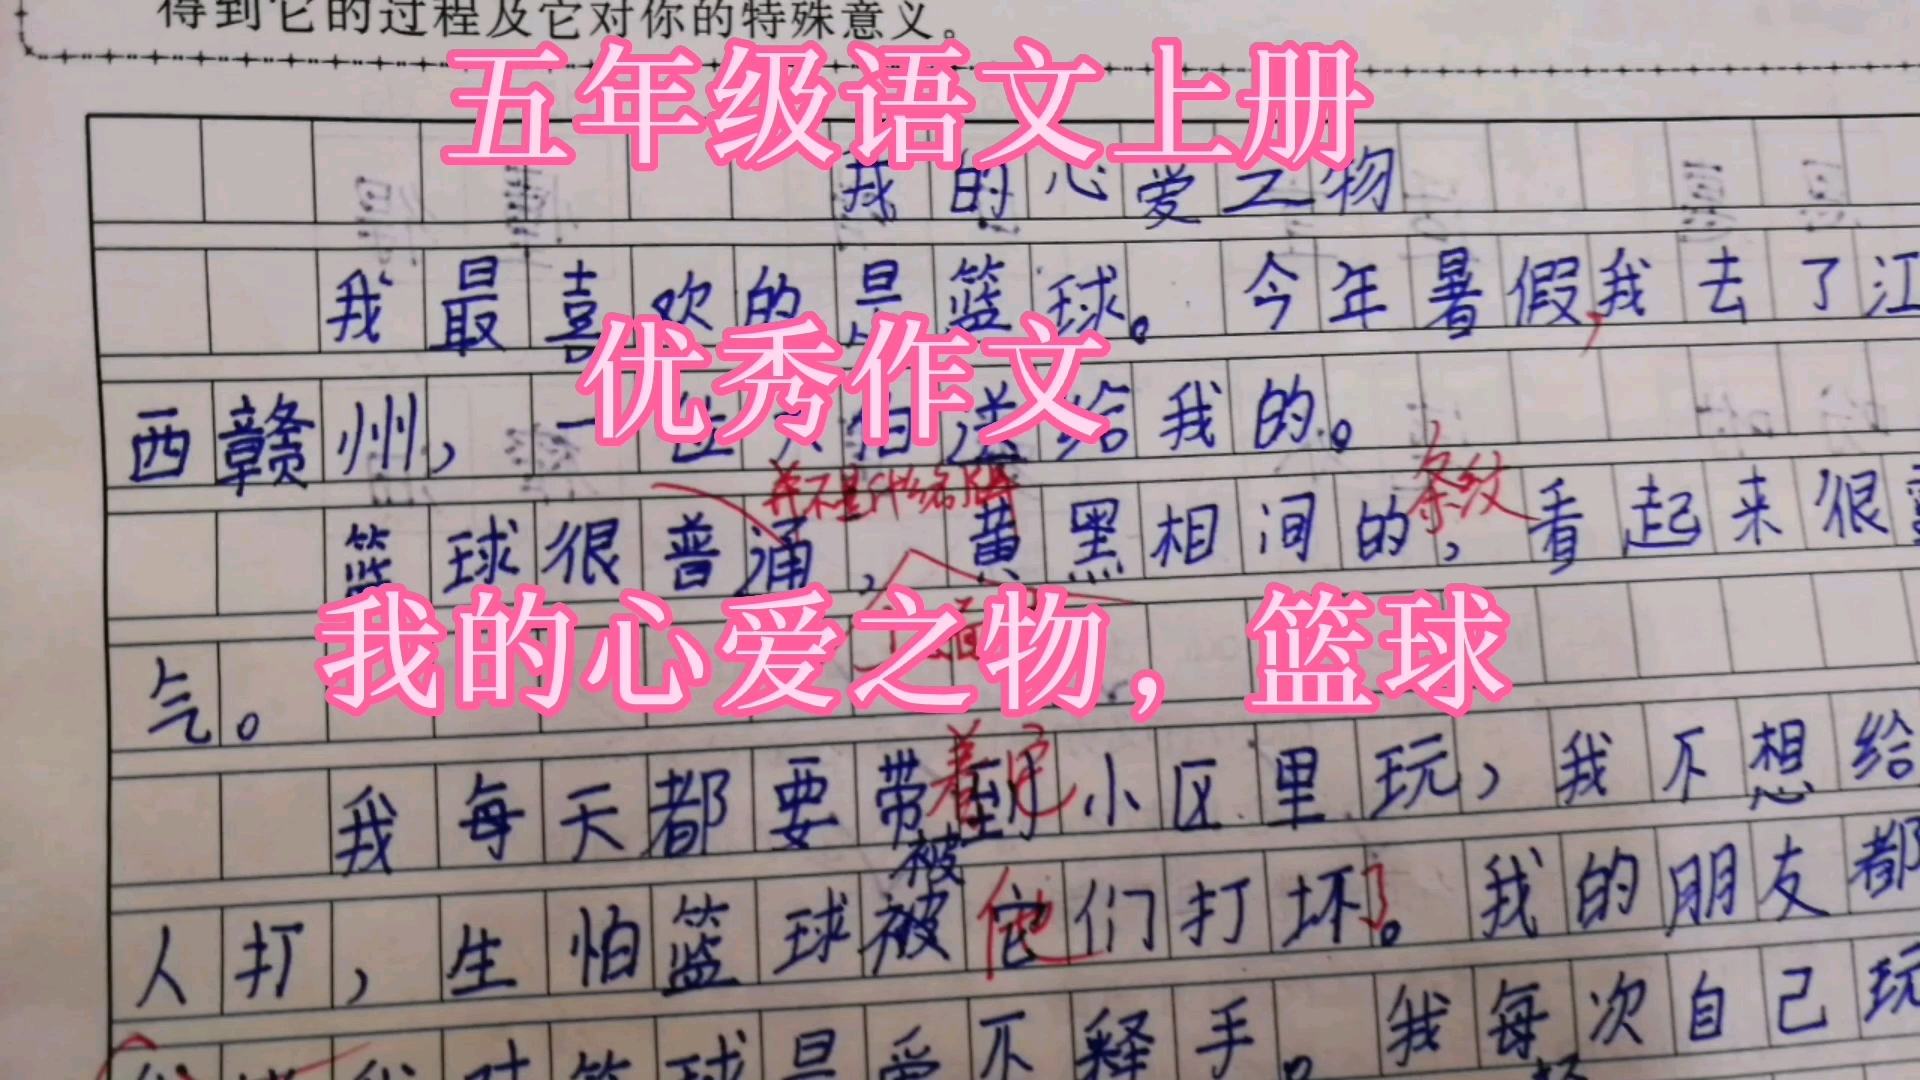 得到它的过程及它对你的特殊意义。
五年级语文上册
我的心爱之物
我最喜欢的是篮球。今年暑假,我去了江
优秀作文
西赣州,一位大伯送给我的。
并不是什么名牌
条纹
篮球很普通,黄黑相间的,看起来很
我的心爱之物，篮球
气。
着它
我每天都要带到小区里玩,我不想给
被
人打,生怕篮球被他们打坏了。我的朋友都
我对篮球是爱不释手。我每次自己玩